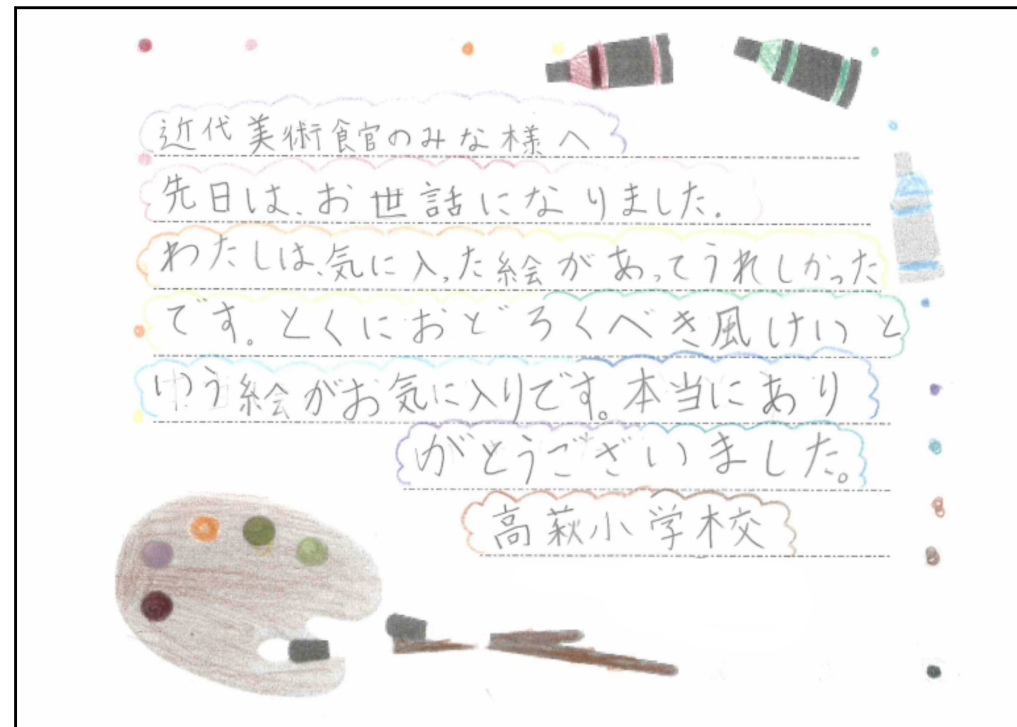 近代美術館のみな様へ
先日は、お世話になりました。
わたしは、気に入った絵があってうれしかった
です。とくにおどろくべき風けいと
ゆう絵がお気に入りです。本当にあり
がとうございました。
高萩小学校